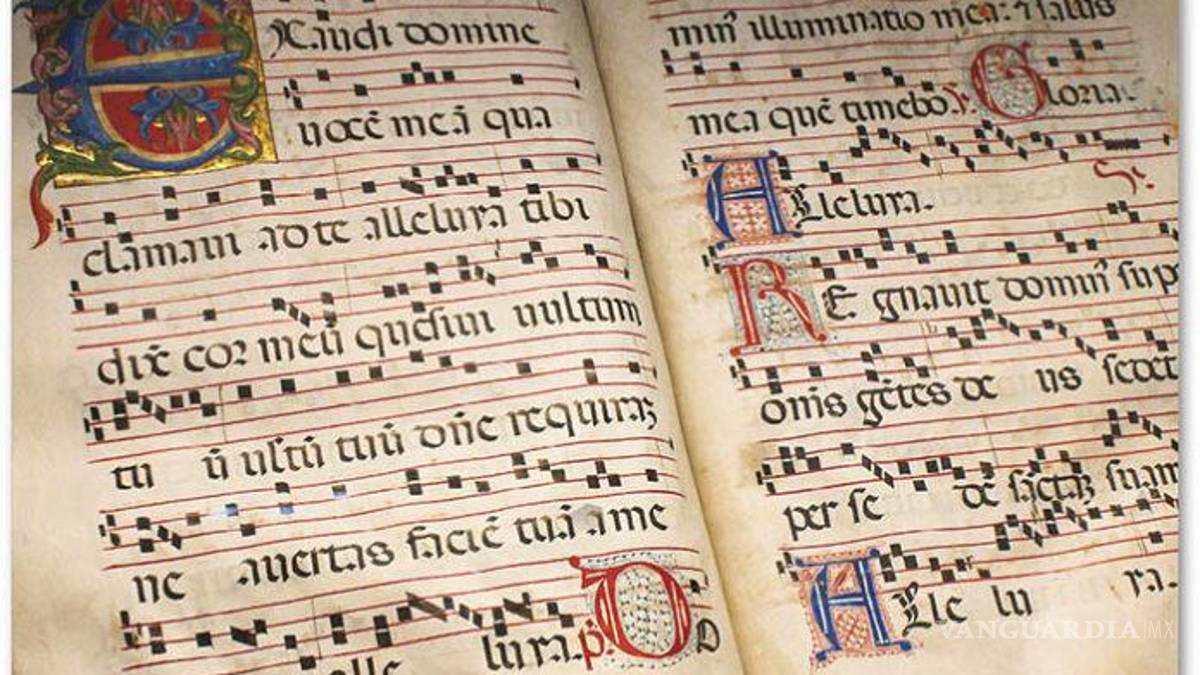 EXaudi domine
uocē meā qua
clamaui ad te alleluya tibi
dix̄ cor meū quesiui uultum
tu ū ultū tuū dn̄e requirā
ne auertas faciē tuā a me
alle luya. p̄. D D
min̄ illuminatio mea: ⁊ salus
mea quē timebo. Gloria.
Alleluya.
REgnauit domin̄ sup
om̄s gētes deus sedet
per se dē sāctā suam
Alle lu ya.
VANGUARDIA|MX